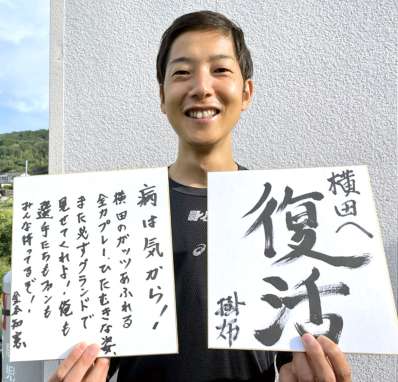 病は気から!
横田のガッツあふれる
全力プレー、ひたむきな姿、
また必ずグランドで
見せてくれよ!俺も
選手たちもファンも
みんな待ってるぞ!
金本知憲
横田へ
復活
掛布